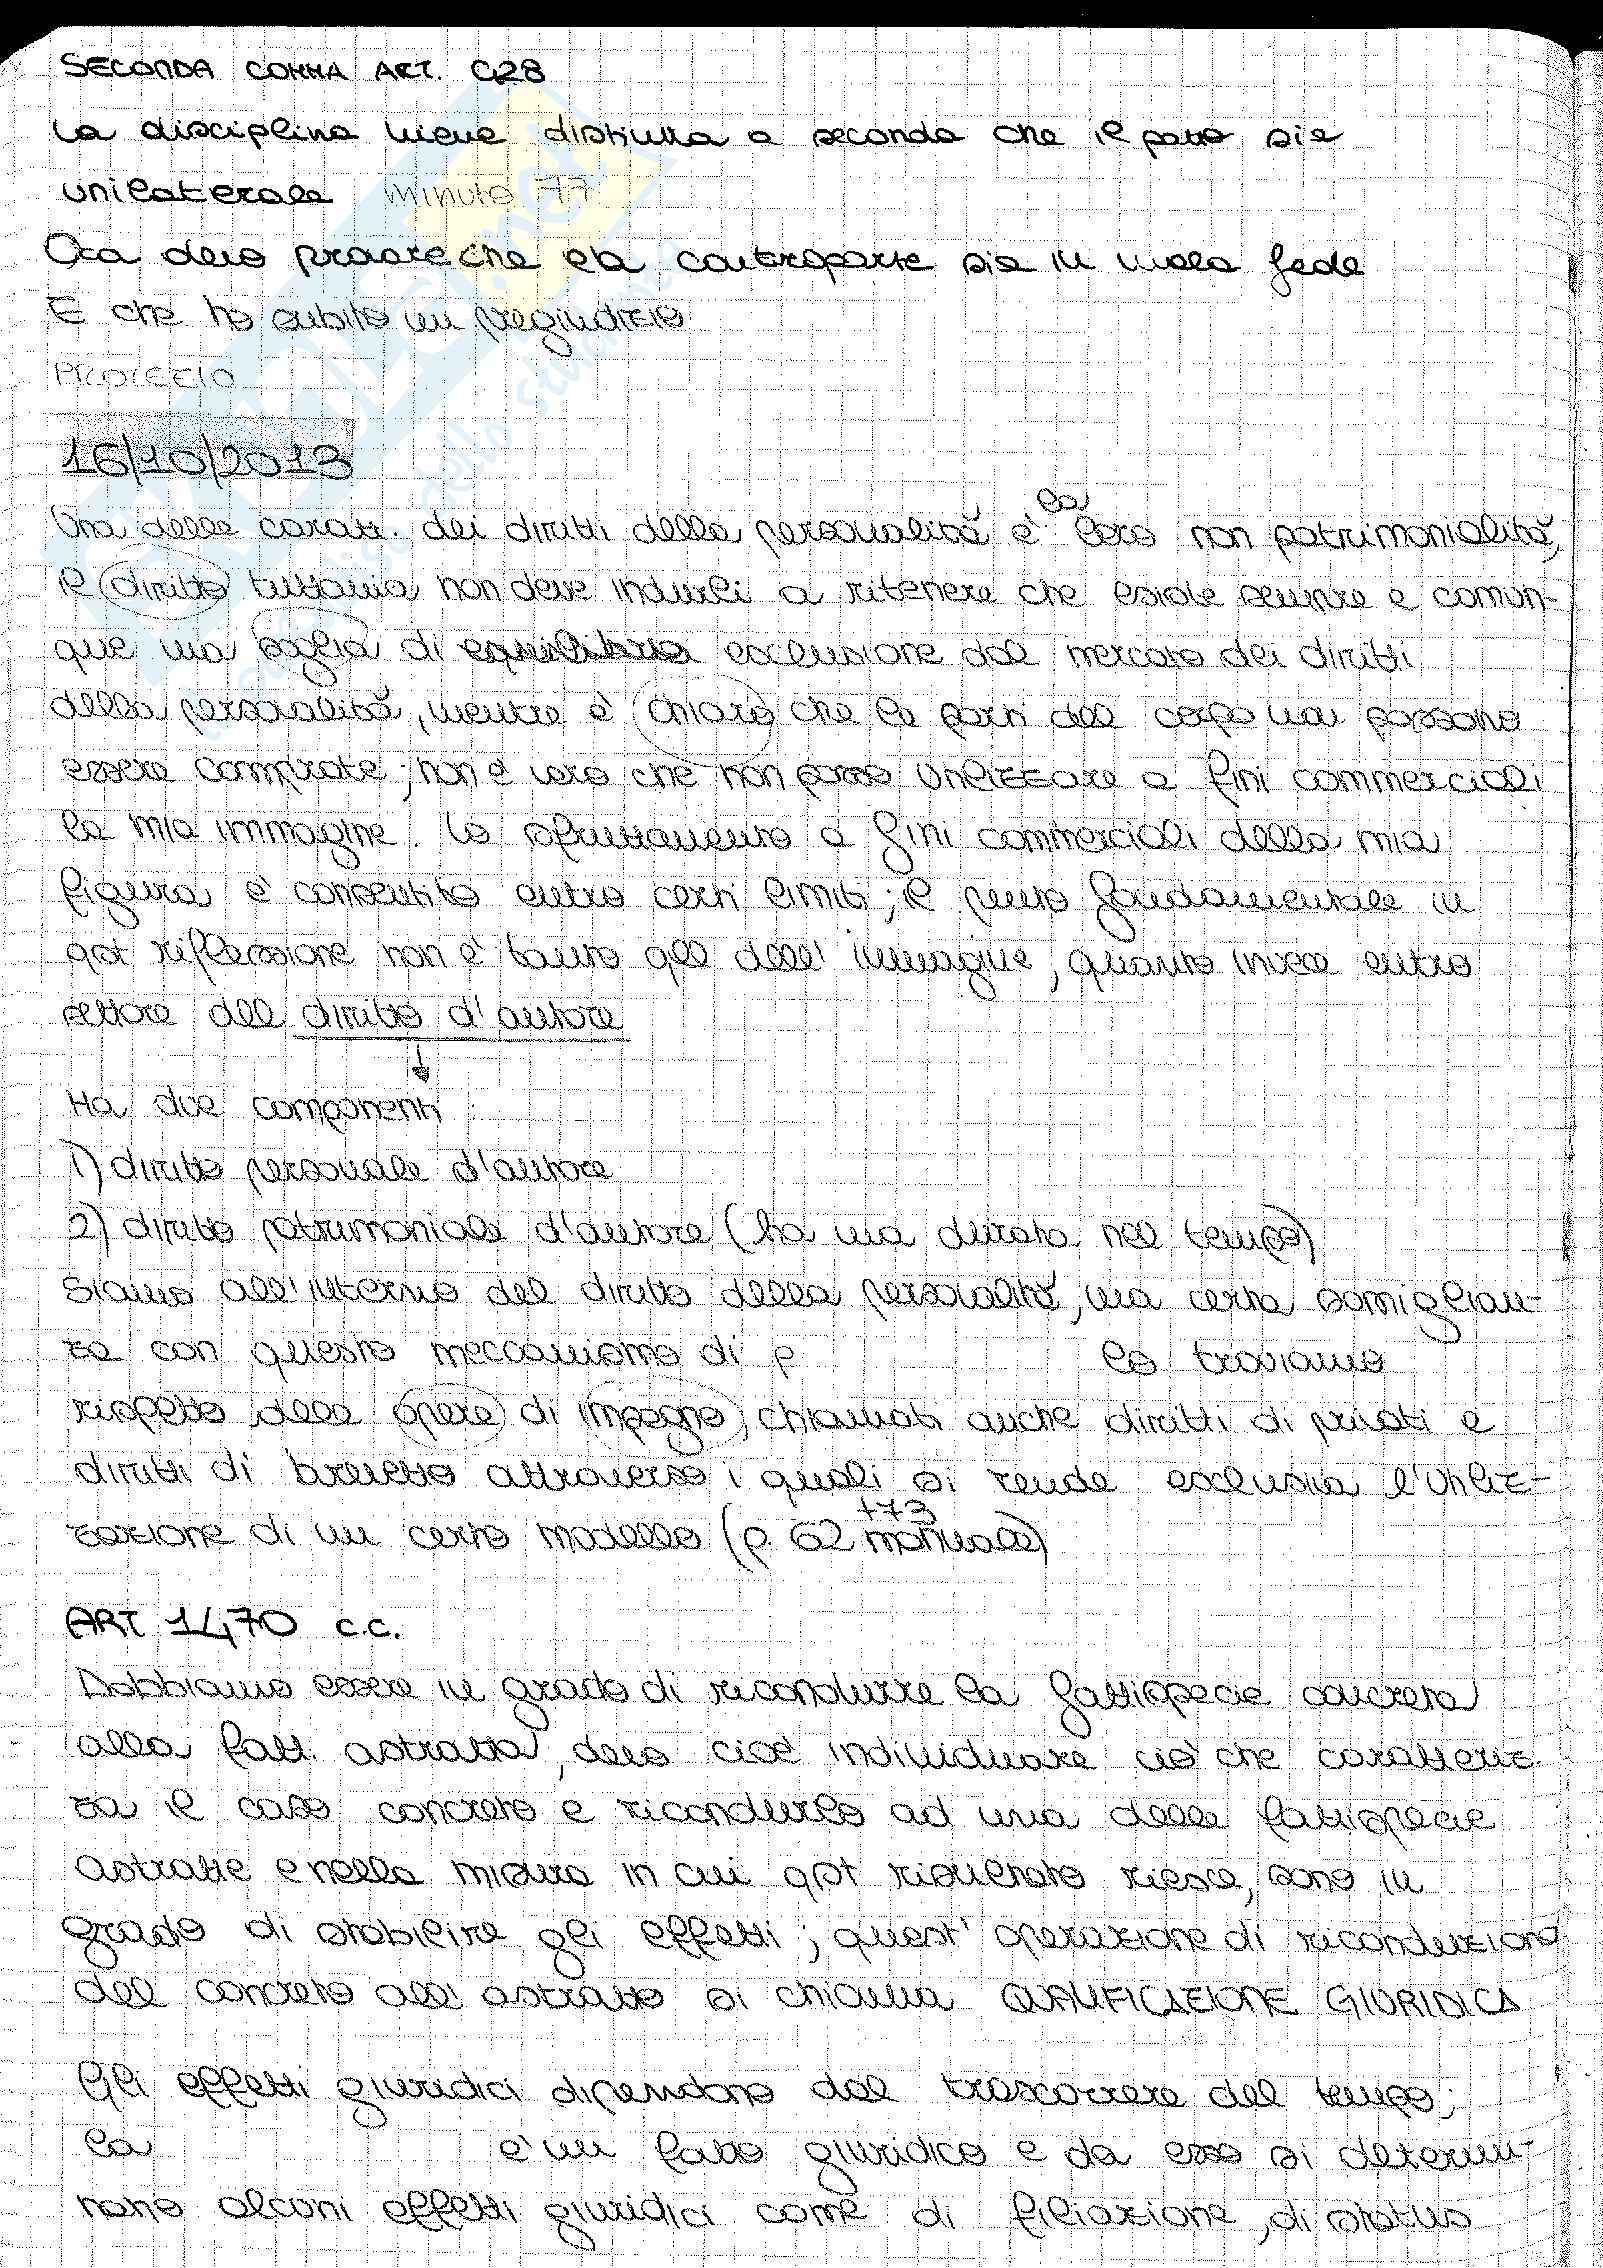 SECONDA COMMA ART. 428
La disciplina viene distinta a seconda che il patto sia
unilaterale minuto 77
Ora devo provare che la controparte sia in mala fede
E che ho subito un pregiudizio
16/10/2013
Una delle caratt. dei diritti della personalità è la loro non patrimonialità,
il diritto tuttavia non deve indurci a ritenere che esiste sempre e comun-
que una soglia di equilibrio esclusione dal mercato dei diritti
della personalità, mentre è chiaro che le parti del corpo non possono
essere comprate; non è vero che non posso utilizzare a fini commerciali
la mia immagine. Lo sfruttamento a fini commerciali della mia
figura è consentito entro certi limiti; il punto fondamentale in
qst riflessione non è tanto qll dell' immagine, quanto invece entro
settore del diritto d'autore
↓
Ha due componenti:
1) diritto personale d'autore
2) diritto patrimoniale d'autore (ha una durata nel tempo)
Siamo all'interno del diritto della personalità, una certa somiglian-
za con questo meccanismo di p la troviamo
rispetto delle opere di impegno, chiamati anche diritti di privati e
diritti di brevetto attraverso i quali si rende esclusiva l'utiliz-
zazione di un certo modello (p. 62 +73 manuale)
ART 1470 c.c.
Dobbiamo essere in grado di ricondurre la fattispecie concreta
alla fatt. astratta, devo cioè individuare ciò che caratteriz-
za il caso concreto e ricondurlo ad una delle fattispecie
astratte e nella misura in cui qst risultato riesce, sono in
grado di stabilire gli effetti; quest' operazione di riconduzione
del concreto all' astratto si chiama QUALIFICAZIONE GIURIDICA
Gli effetti giuridici dipendono dal trascorrere del tempo;
la è un fatto giuridico e da esso si determi-
nano alcuni effetti giuridici come di filiazione, di status